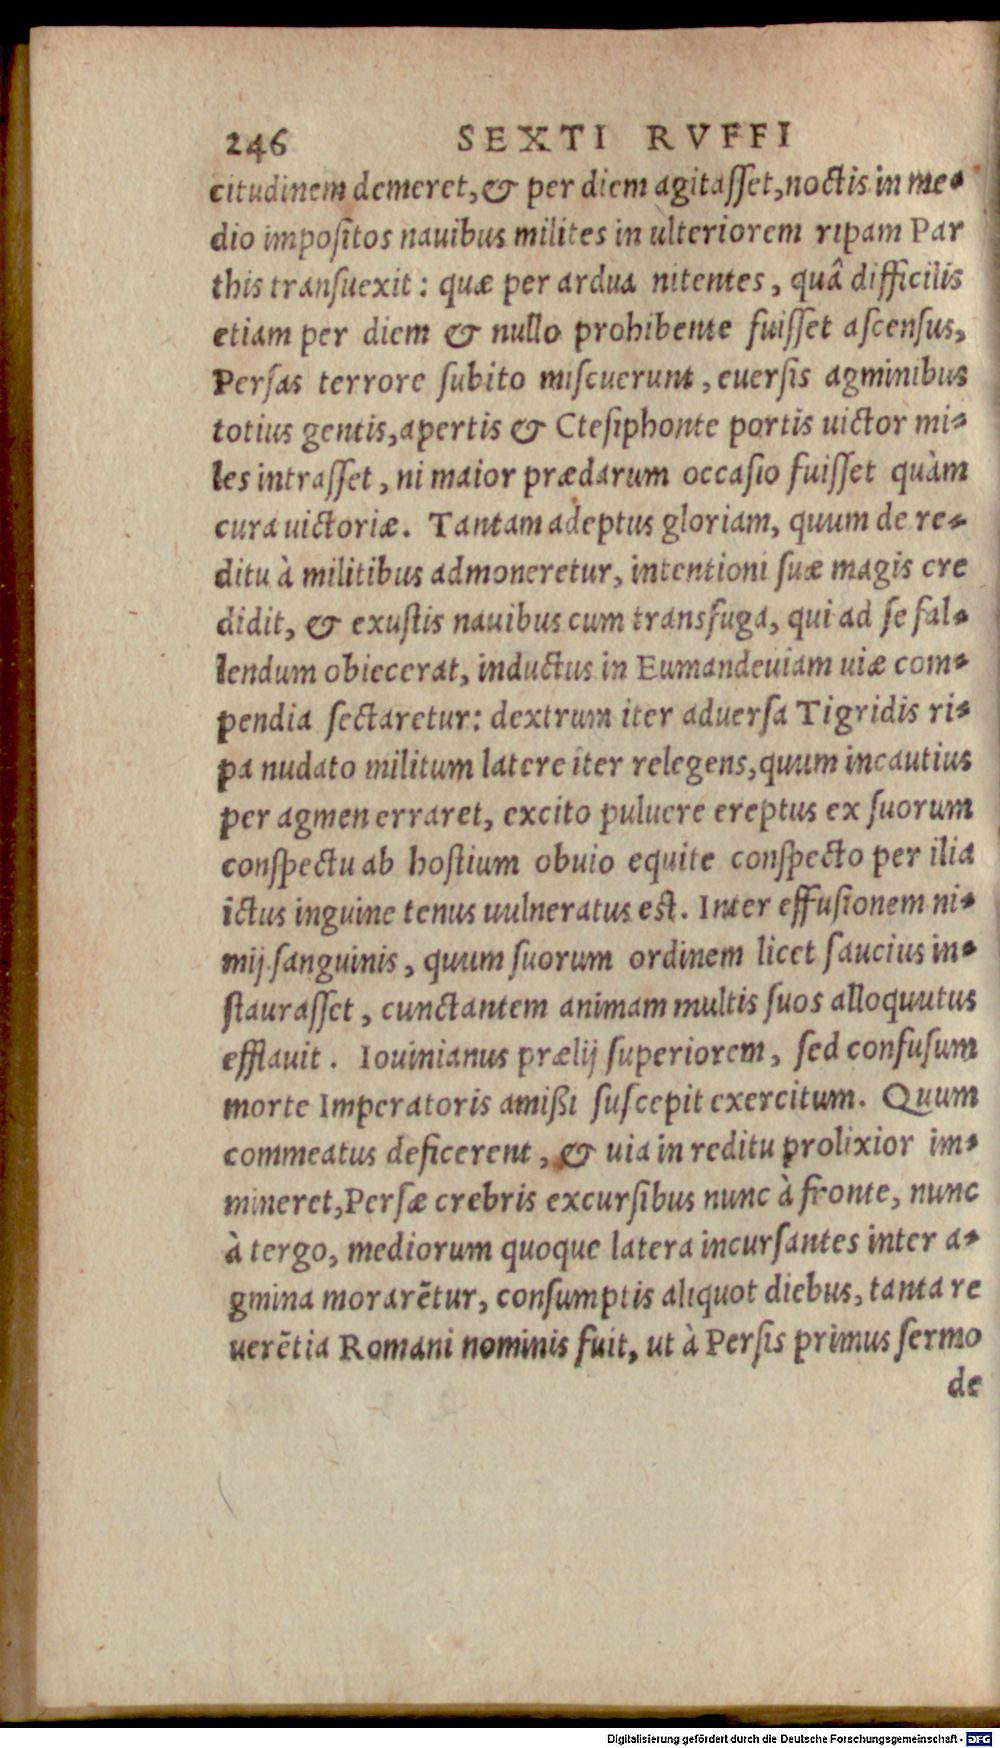 246 SEXTI RVFFI
citudinem demeret, & per diem agitasset, noctis in me-
dio impositos nauibus milites in ùlteriorem ripam Par
this transuexit: quæ per ardua nitentes, quâ difficilis
etiam per diem & nullo prohibente fuisset ascensus,
Persas terrore subito miscuerunt, euersis agminibus
totius gentis, apertis & Ctesiphonte portis uictor mi-
les intrasset, ni maior prædarum occasio fuisset quàm
cura uictoriæ. Tantam adeptus gloriam, quum de re-
ditu à militibus admoneretur, intentioni suæ magis cre
didit, & exustis nauibus cum transfuga, qui ad se fal-
lendum obiecerat, inductus in Eumandeuiam uiæ com-
pendia sectaretur: dextrum iter aduersa Tigridis ri-
pa nudato militum latere iter relegens, quum incautius
per agmen erraret, excito puluere ereptus ex suorum
conspectu ab hostium obuio equite conspecto per ilia
ictus inguine tenus uulneratus est. Inter effusionem ni-
mij sanguinis, quum suorum ordinem licet saucius in-
staurasset, cunctantem animam multis suos alloquutus
efflauit. Iouinianus prælij superiorem, sed confusum
morte Imperatoris amißi suscepit exercitum. Quum
commeatus deficerent, & uia in reditu prolixior im-
mineret, Persæ crebris excursibus nunc à fronte, nunc
à tergo, mediorum quoque latera incursantes inter a-
gmina morarētur, consumptis aliquot diebus, tanta re
uerētia Romani nominis fuit, ut à Persis primus sermo
de
Digitalisierung gefördert durch die Deutsche Forschungsgemeinschaft - DFG